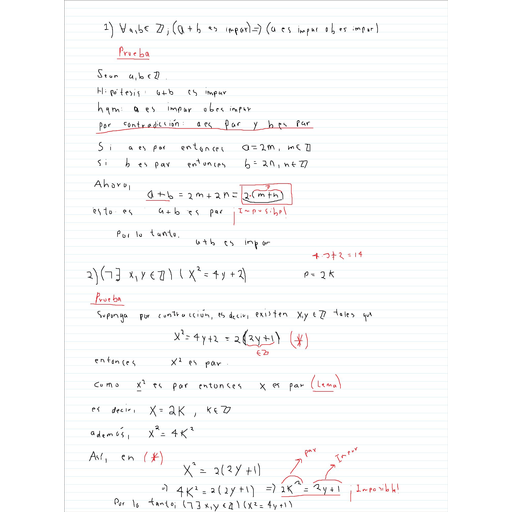 1) ∀ a,b ∈ ℤ, (a + b es impar) ⇒ (a es impar o b es impar)
Prueba
Sean a,b ∈ ℤ.
Hipótesis: a+b es impar
hqm: a es impar o b es impar
por contradicción: a es par y b es par
Si a es par entonces a = 2m, m ∈ ℤ
Si b es par entonces b = 2n, n ∈ ℤ
Ahora,
a + b = 2m + 2n = 2·(m+n)
esto es a+b es par ¡Imposible!
Por lo tanto, a+b es impar
2) (¬∃ x,y ∈ ℤ) (x² = 4y + 2)
P = 2K
Prueba
Suponga por contradicción, es decir, existen x,y ∈ ℤ tales que
x² = 4y + 2 = 2(2y+1) (*)
∈ ℤ
entonces x² es par.
como x² es par entonces x es par (Lema)
es decir, x = 2K, K ∈ ℤ
además, x² = 4K²
Así, en (*)
par Impar
x² = 2(2y+1)
⇒ 4K² = 2(2y+1) ⇒ 2K² = 2y+1 ¡Imposible!
Por lo tanto, (¬∃ x,y ∈ ℤ) (x² = 4y+1)